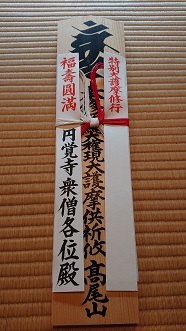 特別大護摩修行
大権現大護摩供祈攸 髙尾山
福壽圓満
円覚寺衆僧各位殿